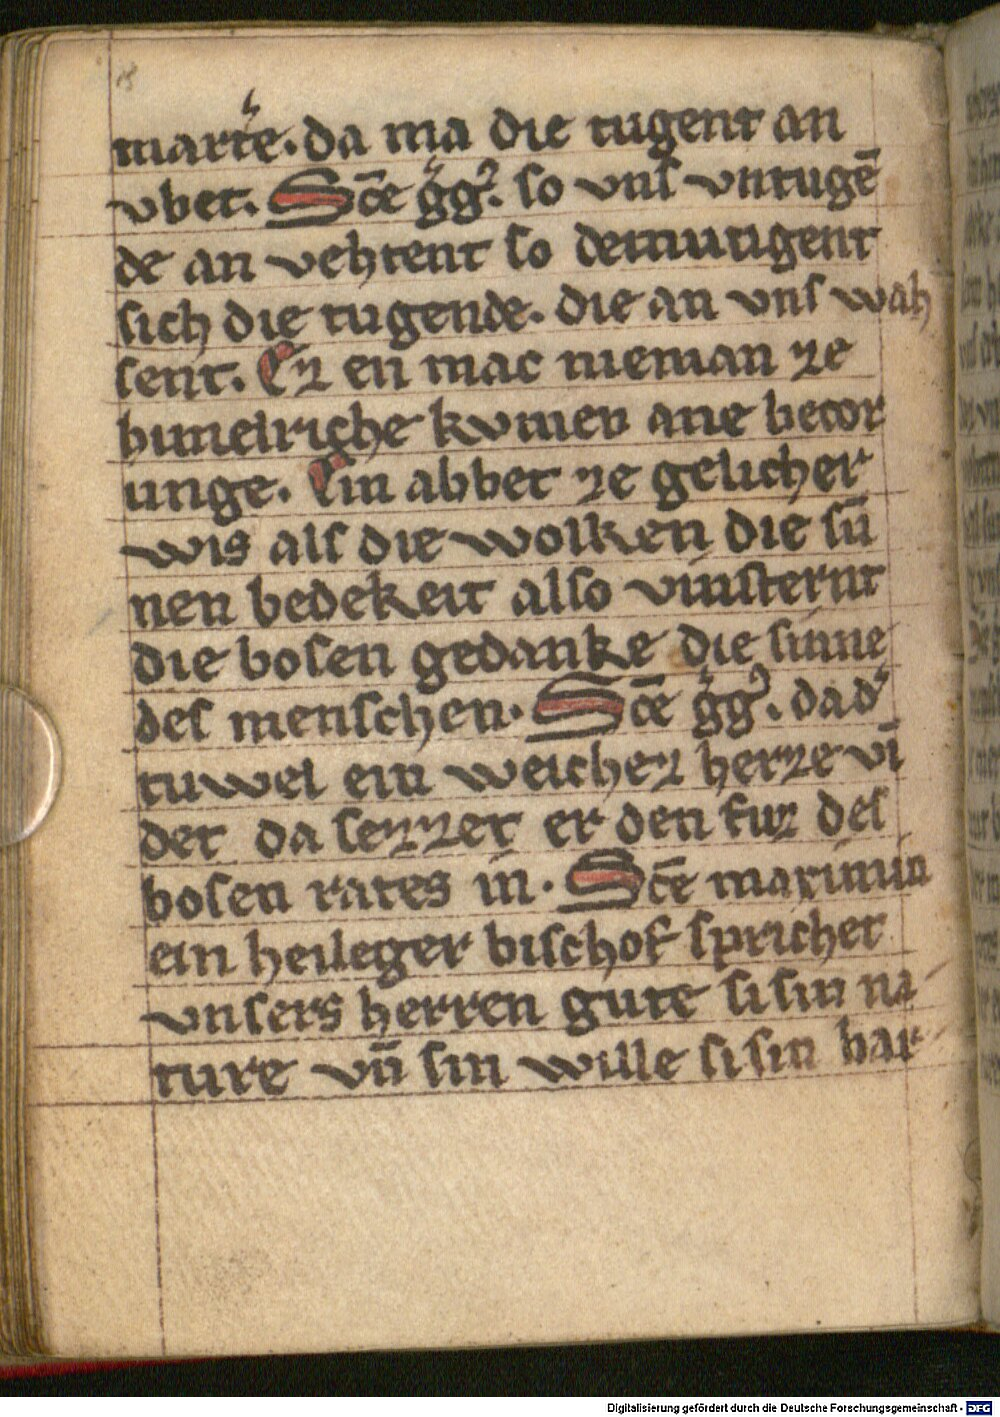 mart͛e. da ma die tugent an
vbet. Sc̄e gͥgꝰ. so vnſ vntugē
de an vehtent so demutigent
sich die tugende. die an vnſ wah
sent. Ez en mac nieman ze
himelriche kvmen ane becor
unge. Ein abbet ze gelicher
wis alſ die wolken die sū
nen bedekeit also vinsternt
die bosen gedanke die sinne
deſ menschen. Sc̄e gͥgꝰ. da d͛
tuwel ein weichez herze vī
det da sezzet er den fuz deſ
bosen rates in. Sc̄e maximin
ein heileger bischof sprichet
vnsers herren gute si sin na
ture vn̄ sin wille si sin bar
Digitalisierung gefördert durch die Deutsche Forschungsgemeinschaft - DFG